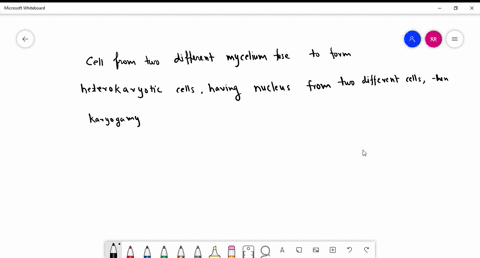 Microsoft Whiteboard
RR
Cell from two different mycelium fuse to form
heterokaryotic cells, having nucleus from two different cells, then
karyogamy